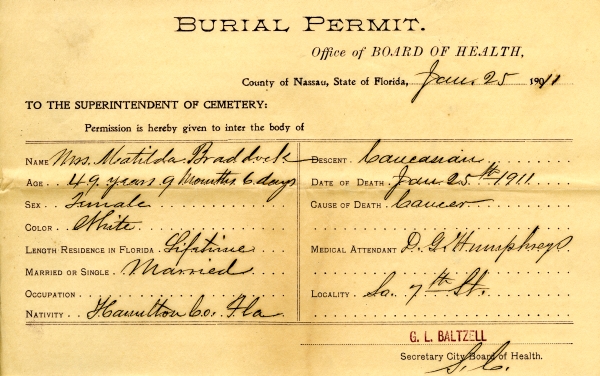 BURIAL PERMIT.
Office of BOARD OF HEALTH,
County of Nassau, State of Florida, Jan. 25 1911
TO THE SUPERINTENDENT OF CEMETERY:
Permission is hereby given to inter the body of
NAME Mrs. Matilda Braddock
AGE 49 years 9 Months 6 days
SEX Female
COLOR White
LENGTH RESIDENCE IN FLORIDA Lifetime
MARRIED OR SINGLE Married
OCCUPATION
NATIVITY Hamilton Co. Fla
DESCENT Caucasian
DATE OF DEATH Jan. 25th 1911
CAUSE OF DEATH Cancer
MEDICAL ATTENDANT D. G. Humphreys.
LOCALITY So. 7th St.
G. L. BALTZELL
Secretary City Board of Health.